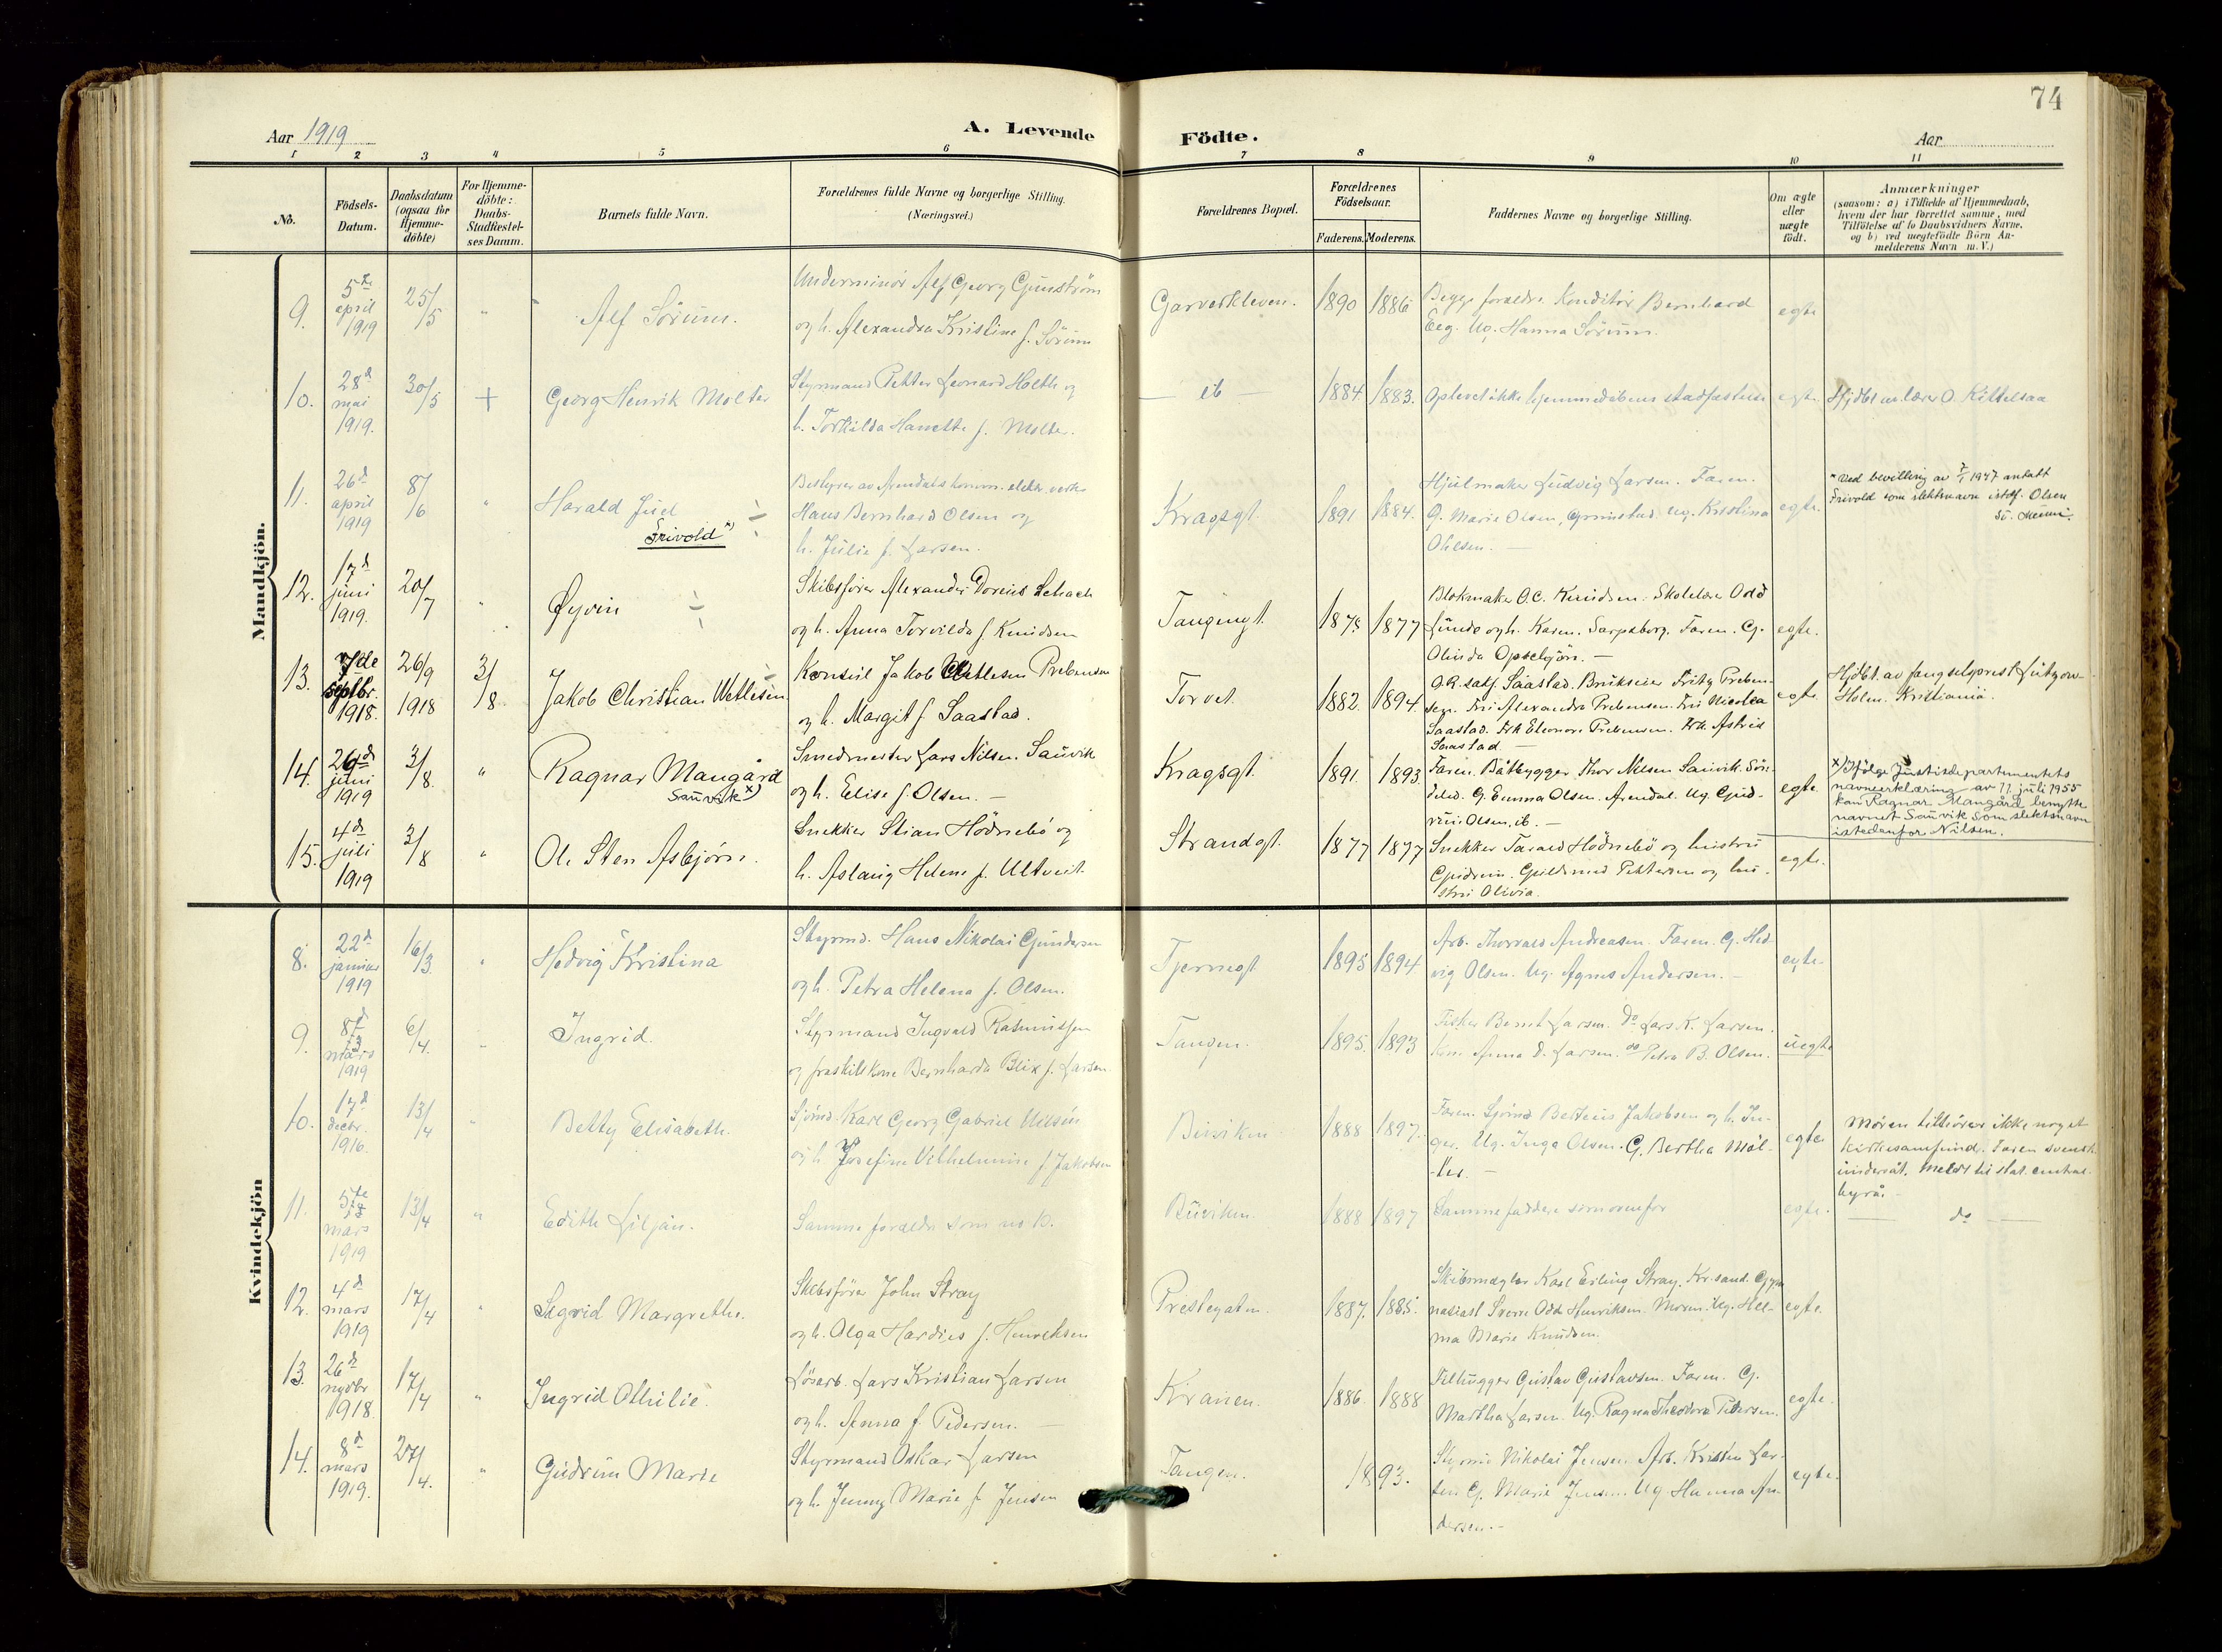 74
Aar 1919
A. Levende
Födte.
Aar
1 2 3 4 5 6 7 8 9 10 11
No.
Födsels-
Datum.
Daabsdatum
(ogsaa for
Hjemme-
döbte)
For Hjemme-
döbte:
Daabs-
Stadfæstel-
ses Datum.
Barnets fulde Navn.
Forældrenes fulde Navne og borgerlige Stilling.
(Næringsvei.)
Forældrenes Bopæl.
Forældrenes
Födselsaar.
Faderens. Moderens.
Faddernes Navne og borgerlige Stilling.
Om ægte
eller
uægte
födt.
Anmærkninger
(saasom: a) i Tilfælde af Hjemmedaab,
hvem der har forrettet samme, med
Tilföielse af to Daabsvidners Navne.
og b) ved uægtefödte Börn An-
melderens Navn m. V.)
Mandkjön.
9.
5te
april
1919
25/5
"
Alf Sörum.
Underminør Alf Georg Gunström
og h. Alexandra Kristine f. Sörum
Garverkleven.
1890 1886
Begge forældre. Konditor Bernhard
Eeg. Ug. Hanna Sörum.
egte
10.
28d
mai
1919.
30/5
+
Georg Henrik Molter
Styrmand Petter Leonard Holth og
h. Torhilda Hanette f. Molter.
— ib —
1884. 1883.
Oplevet ikke hjemmedåbens stadfæstelse
egte.
Hjdbt av lærer O. Kittelsaa
11.
26d
april
1919
8/6
"
Harald Juel
Frivold x)
Bestyrer av Arendals komm. elektr. verk
Hans Bernhard Olsen og
h. Julie f. Larsen.
Kragsgt.
1891 1884.
Hjulmaker Ludvig Larsen. Faren.
G. Marie Olsen, Grimstad. Ug. Kristina
Ohlsen. —
egte.
x Ved bevilling av 7/1 1947 antatt
Frivold som slektsnavn istdf. Olsen
12.
17d
juni
1919.
20/7
"
Øyvin
Skibsfører Alexander Doreus Schach
og h. Anna Torvilda f. Knudsen
Tangengt.
1875 1877
Blokmaker O.C. Knudsen. Skolelærer Odd
Lunde og h. Karen. Sarpsborg. Faren. G.
Olinda Opsehjön. —
egte.
13.
7de
septbr.
1918.
26/9
1918
3/8
Jakob Christian Wetlesen
Konsul Jakob Wetlesen Prebensen
og h. Margit f. Saastad.
Torvet.
1882. 1894.
O.R. satf. Saastad. Brukseier Fritz Preben-
sen. Fru Alexandra Prebensen. Fru Nicolea
Saastad. Frk Eleonore Prebensen. Frk. Astrid
Saastad. —
egte
Hjdbt. av fængselsprest Lützow-
Holm. Kristiania.
14.
26d
juni
1919
3/8.
"
Ragnar Mangård
Sauvik x)
Smedmester Lars Nilsen. Sauvik
og h. Elise f. Olsen. —
Kragsgt.
1891. 1893
Faren. Båtbygger Thor Nilsen Sauvik. Sön-
deled. G. Emma Olsen. Arendal. Ug. Gud-
run Olsen, ib. —
egte.
x) Ifölge Justisdepartementets
navneerklæring av 11. juli 1955
kan Ragnar Mangård benytte
navnet Sauvik som slektsnavn
istedenfor Nilsen.
15.
4d
juli
1919
3/8
"
Ole Sten Asbjørn.
Snekker Stian Hödnebö og
h. Aslaug Helene f. Ultveit.
Strandgt.
1877 1877
Snekker Tarald Hödnebö og hustru
Gudrun. Guldsmed Pettersen og hu-
stru Olivia.
egte.
Kvindekjön
8.
22d
januar
1919
16/3.
"
Hedvig Kristina
Styrmd. Hans Nikolai Gundersen
og h. Petra Helena f. Olsen.
Tjernegt
1895 1894
Arb. Thorvald Andreasen. Faren. G. Hed-
vig Olsen. Ug. Agnes Andersen. —
egte
9.
8d
mars
1919
6/4.
"
Ingrid.
Styrmand Ingvald Rasmussen
og fraskilt kone Bernharda Blix f. Larsen
Tangen.
1895. 1893
Fisker Bernt Larsen. do Lars K. Larsen.
Kone Anna D. Larsen. do Petra B. Olsen.
uegte
10.
17d
decbr.
1916.
13/4
"
Betty Elisabeth.
Sjömd. Karl Georg Gabriel Nilsén
og h. Josefine Vilhelmine f. Jakobsen
Buviken
1888 1897.
Faren. Sjömd Berteus Jakobsen og h. In-
ger. Ug. Inga Olsen. G. Bertha Möl-
ler. —
egte
Moren tilhører ikke noget
kirkesamfund. Faren svensk
undersåt. Meldt til stat. central-
byrå. —
11.
5te
mars
1919
13/4
"
Edith Liljan.
Samme forældre som no 10.
Buviken.
1888 1897
Samme faddere som ovenfor
egte.
— do —
12.
4d
mars
1919
17/4
"
Sigrid Margrethe.
Skibsfører John Stray
og h. Olga Hardies f. Henriksen
Prestegaten.
1887. 1885.
Skibsmægler Karl Erling Stray. Kr.sand. Gym-
nasiast Sverre Odd Henriksen. Moren. Ug. Hel-
ma Marie Knudsen.
egte.
13.
26d
novbr
1918.
17/4
"
Ingrid Othilie.
Lösarb. Lars Kristian Larsen
og h. Anna f. Pedersen.
Kranen.
1886. 1888
Filhugger Gustav Gustavsen. Faren. G.
Martha Larsen. Ug. Ragna Theodora Pedersen.
egte.
14.
8d
mars
1919.
27/4.
"
Gudrun Marie
Styrmand Oskar Larsen
og h. Jenny Marie f. Jensen
Tangen.
1893.
Styrmd Nikolai Jensen. Arb. Kristen Lar-
sen G. Marie Jensen. Ug. Hanna An-
dersen. —
egte.